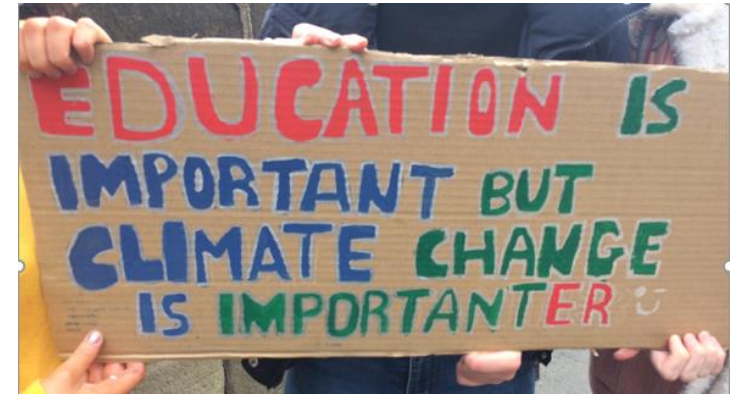 EDUCATION IS
IMPORTANT BUT
CLIMATE CHANGE
IS IMPORTANTER